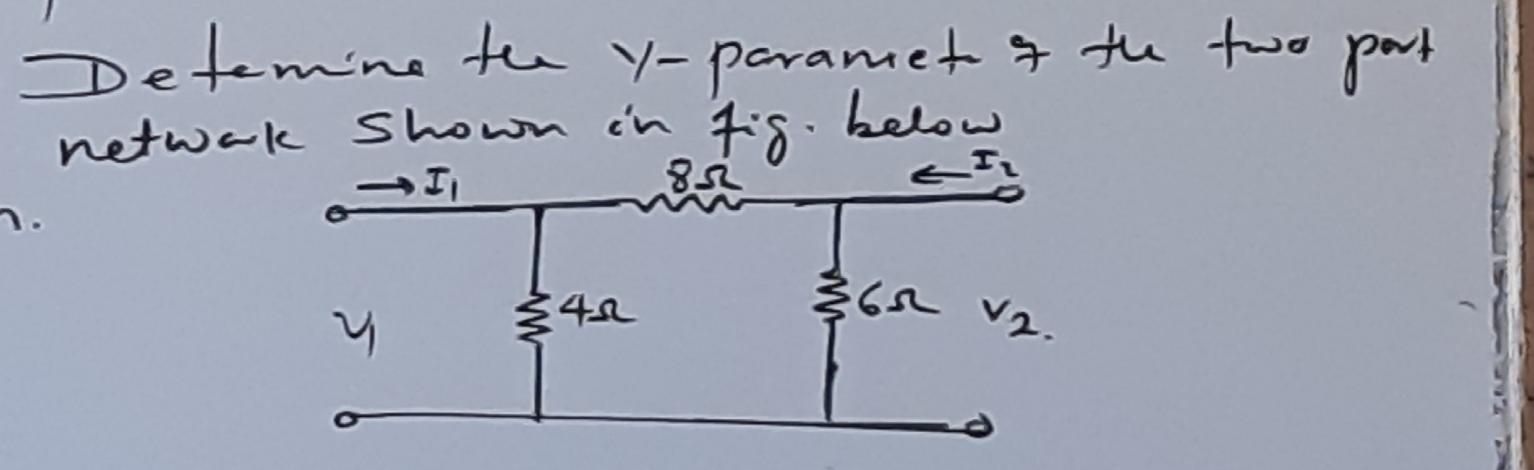 Determine the Y-paramet of the two port
network shown in fig. below
→ I₁ 8Ω ← I₂
n.
V₁ 4Ω 6Ω V₂.